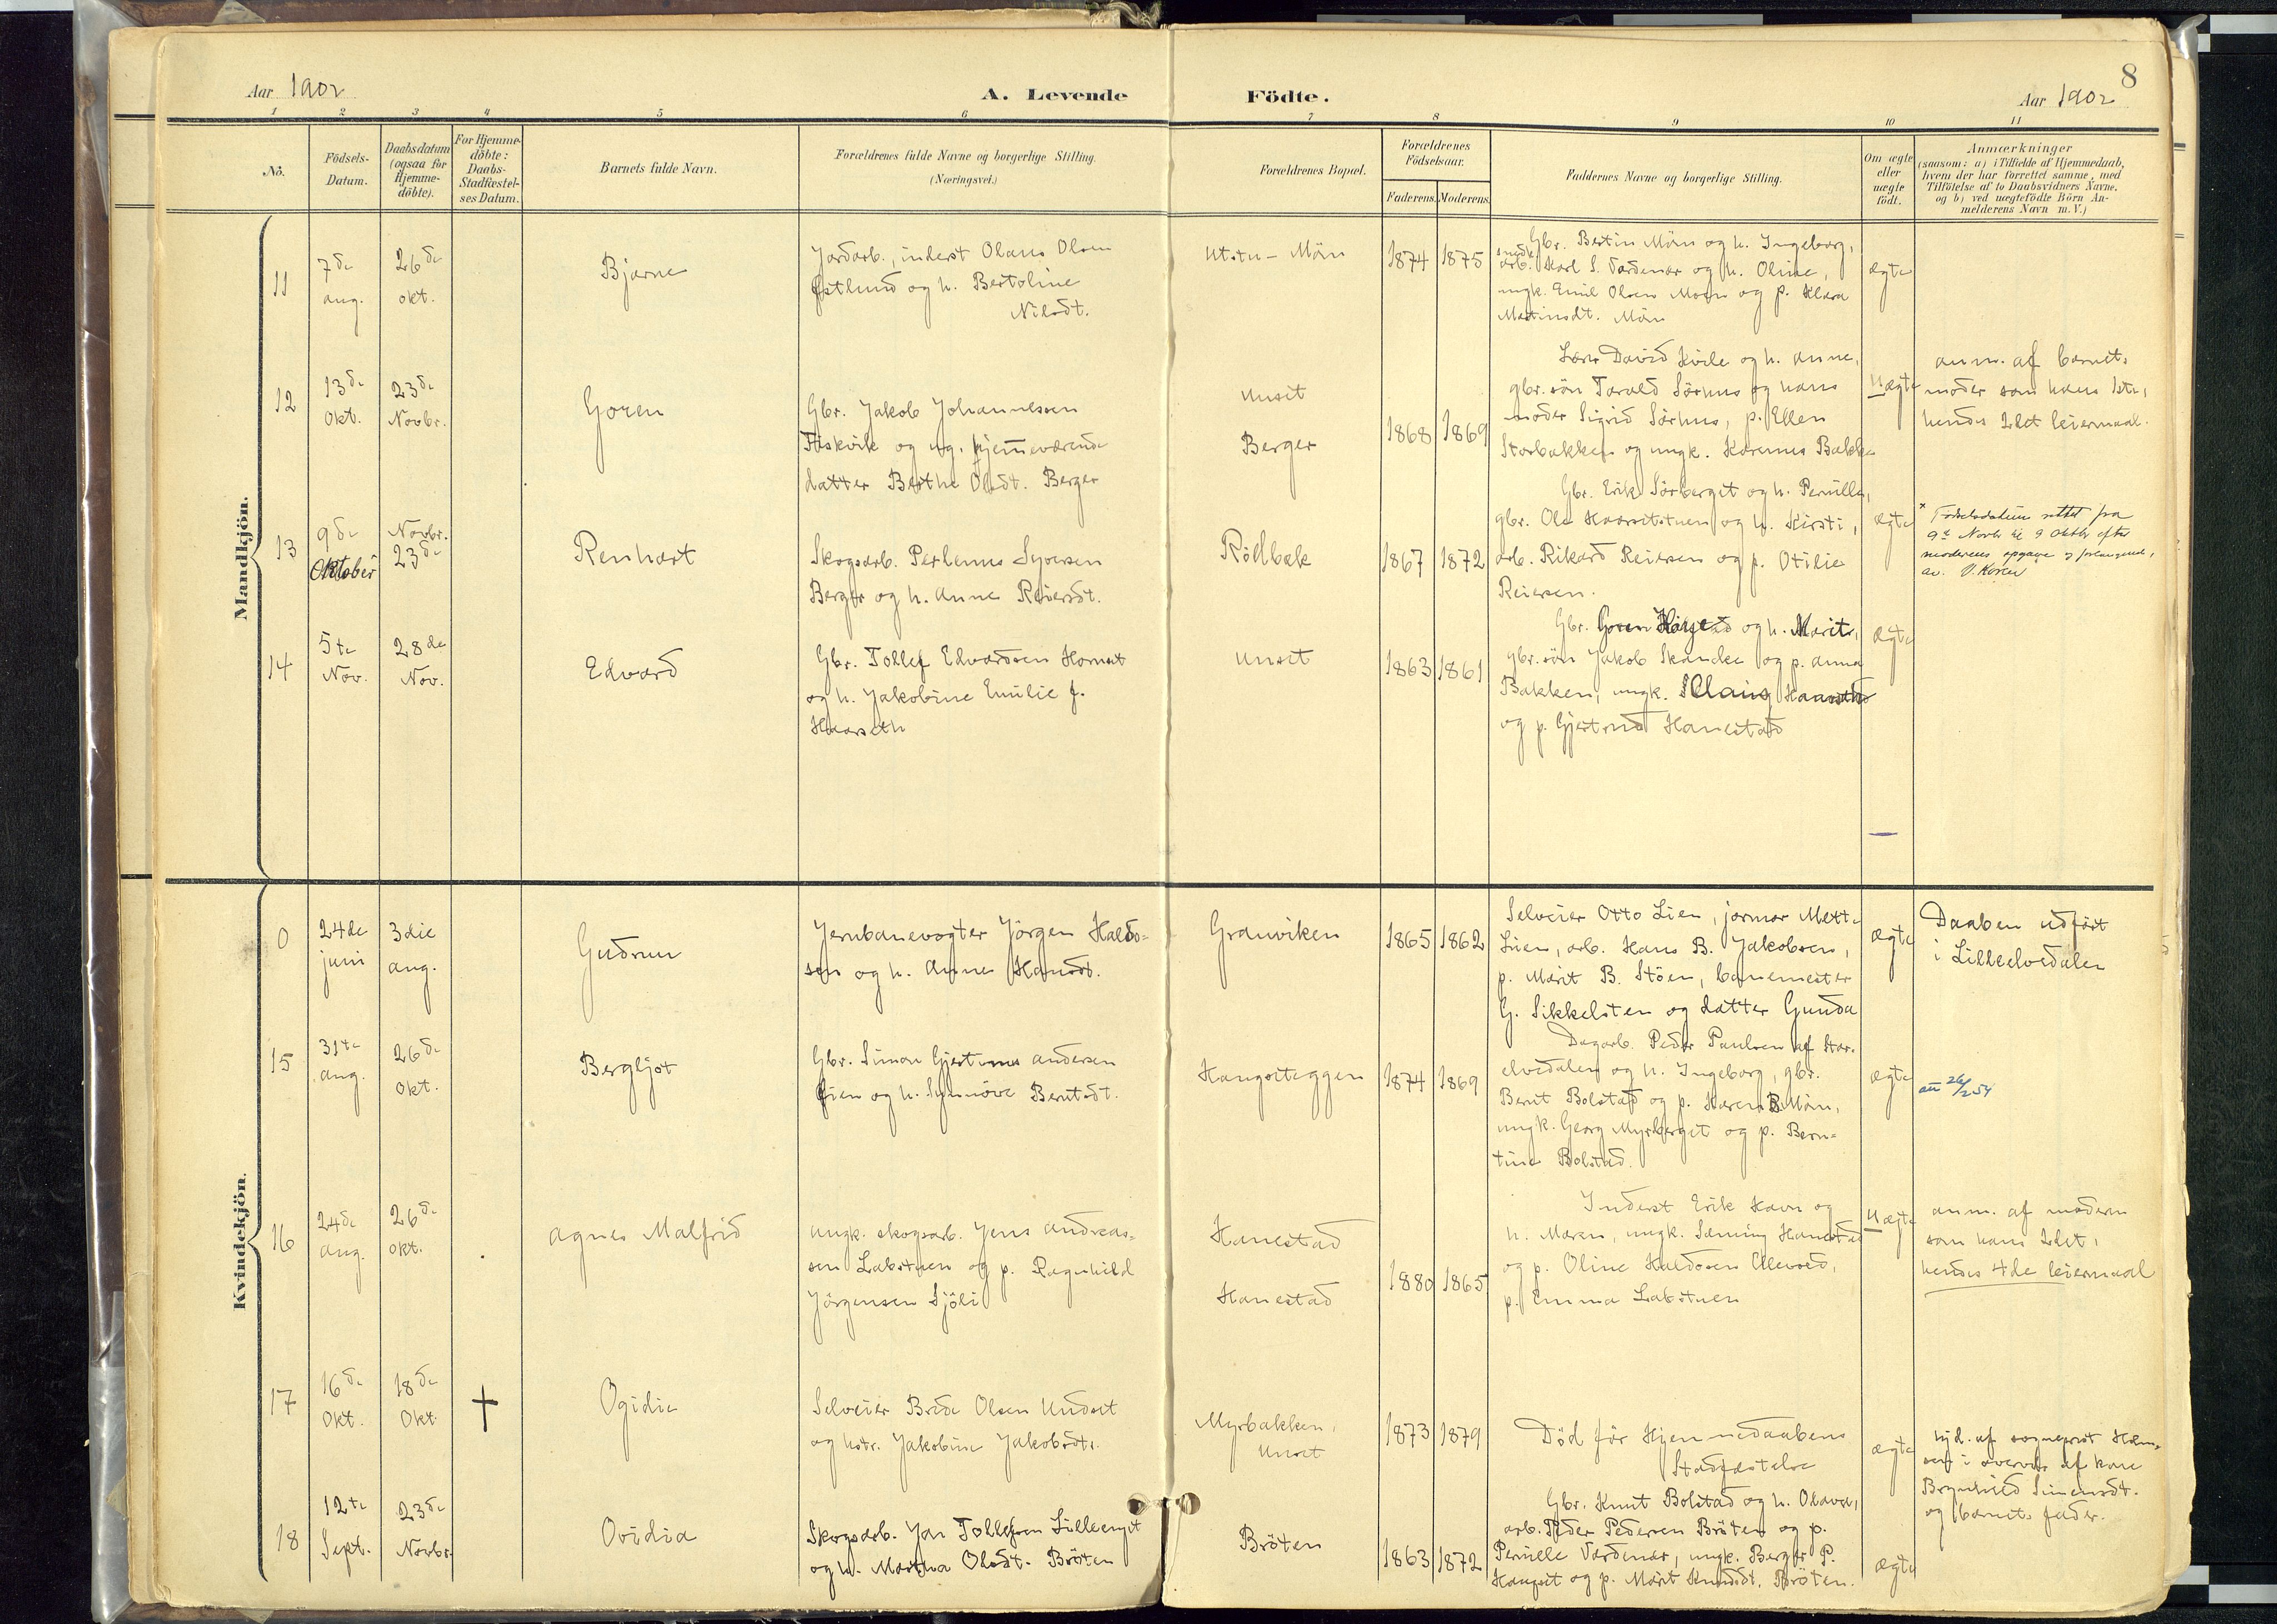 8
Aar 1902
A. Levende
Födte.
Aar 1902
1 2 3 4 5 6 7 8 9 10 11
No.
Födsels-
Datum.
Daabsdatum
(ogsaa for
Hjemme-
döbte).
For Hjemme-
döbte:
Daabs-
Stadfæstel-
ses Datum.
Barnets fulde Navn.
Forældrenes fulde Navne og borgerlige Stilling.
(Næringsvei.)
Forældrenes Bopæl.
Forældrenes
Födselsaar.
Faderens. Moderens.
Faddernes Navne og borgerlige Stilling.
Om ægte
eller
uægte
födt.
Anmærkninger
(saasom: a) i Tilfælde af Hjemmedaab,
hvem der har forrettet samme, med
Tilföielse af to Daabsvidners Navne.
og b) ved uægtefödte Börn An-
melderens Navn m. V.)
Mandkjön.
11
7de
aug.
26de
okt.
Bjarne
Jordarb., inderst Olaus Olsen
Østlund og h. Bertoline
Nilsdt.
Utstu - Mön
1874 1875
Gbr. Bertin Mön og h. Ingeborg,
snedk.
arb. Karl S. Vardenær og h. Oline,
ungk. Emil Olsen Moen og p. Klara
Martinsdt. Mön
ægte
12
13de
Okt.
23de
Novbr.
Goren
Gbr. Jakob Johannessen
Fiskvik og ug. hjemmeværende
datter Berthe Olsdt. Berger
Unset
Berger
1868 1869
Lærer David Kvile og h. Anne,
gbr. sön Tarald Sörhus og hans
moder Sigrid Sörhus, p. Ellen
Storbakken og ungk. Karenus Bakke
uægte
anm. af barnets
moder som hans 1ste,
hendes 2det leiermaal.
13
9de
Oktober
Novbr.
23de
Renhart
Skogsarb. Perlenus Syversen
Berger og h. Anne Reiersdt.
Rödbæk
1867 1872
Gbr. Erik Sörberget og h. Pernille,
gbr. Ole Haarsetstuen og h. Kirsti,
arb. Rikard Reiersen og p. Otilie
Reiersen.
ægte
* Födselsdatum rettet fra
9de Novbr til 9 Oktbr efter
moderens opgave og forlangende,
av. V. Koren
14
5te
Nov.
28de
Nov.
Edvard
Gbr. Tollef Edvardsen Hornset
og h. Jakobine Emilie f.
Haarseth
Unset
1863 1861
Gbr. Goren og h. Marit,
gbr. sön Jakob Skancke og p. Anna
Bakken, ungk.
og p. Gjertrud Hanestad
ægte
Kvindekjön.
0
24de
juni
3die
aug.
Gudrun
Jernbanevogter Jörgen Haldo-
sen og h. Anne Hansdt.
Granviken
1865 1862
Selveier Otto Lien, jormor Mette
Lien, arb. Hans B. Jakobsen,
p. Marit B. Stöen, banemester
G. Sikkelsten og datter Gunda
ægte
Daaben udfört
i Lilleelvedalen
15
31te
aug.
26de
okt.
Bergljot
Gbr. Simon Gjertinus Andersen
Øien og h. Synnöve Berntsdt.
Haugsteggen
1874 1869
Dagarb. Peder Paulsen af Stor-
elvedalen og h. Ingeborg, gbr.
Bernt Bolstad og p. Karen B. Mön,
ungk. Georg Myrberget og p. Bern-
tine Bolstad.
ægte
att 26/2 54
16
24de
aug.
26de
okt.
Agnes Malfrid
Ungk. skogsarb. Jens Andreas-
sen Labstuen og p. Ragnhild
Jörgensen Sjöli
Hanestad
Hanestad
1880 1865
Inderst Erik Havn og
h. Maren, ungk. Sæming Hanestad
og p. Oline Haldosen Ellevold,
p. Emma Labstuen
uægte
anm. af moderen
som hans 2det,
hendes 4de leiermaal
17
16de
Okt.
18de
Okt.
†
Ogidie
Selveier Brede Olsen Undset
og hstr. Jakobine Jakobsdt.
Myrbakken,
Unset
1873 1879
Död för Hjemmedaabens
Stadfæstelse
ægte
hjd. af sogneprest Han-
sen i overvær af kone
Brynhild Simensdt.
og barnets fader.
18
12te
Sept.
23de
Novbr.
Ovidia
Skogsarb. Jon Tollefsen Lilleenget
og h. Martha Olsdt. Bröten
Bröten
1863 1872
Gbr. Knut Bolstad og h. Olava,
arb. Peder Pedersen Bröten og p.
Pernille Vardenær, ungk. Berger P.
Haugset og p. Marit Knudsdt. Bröten.
ægte